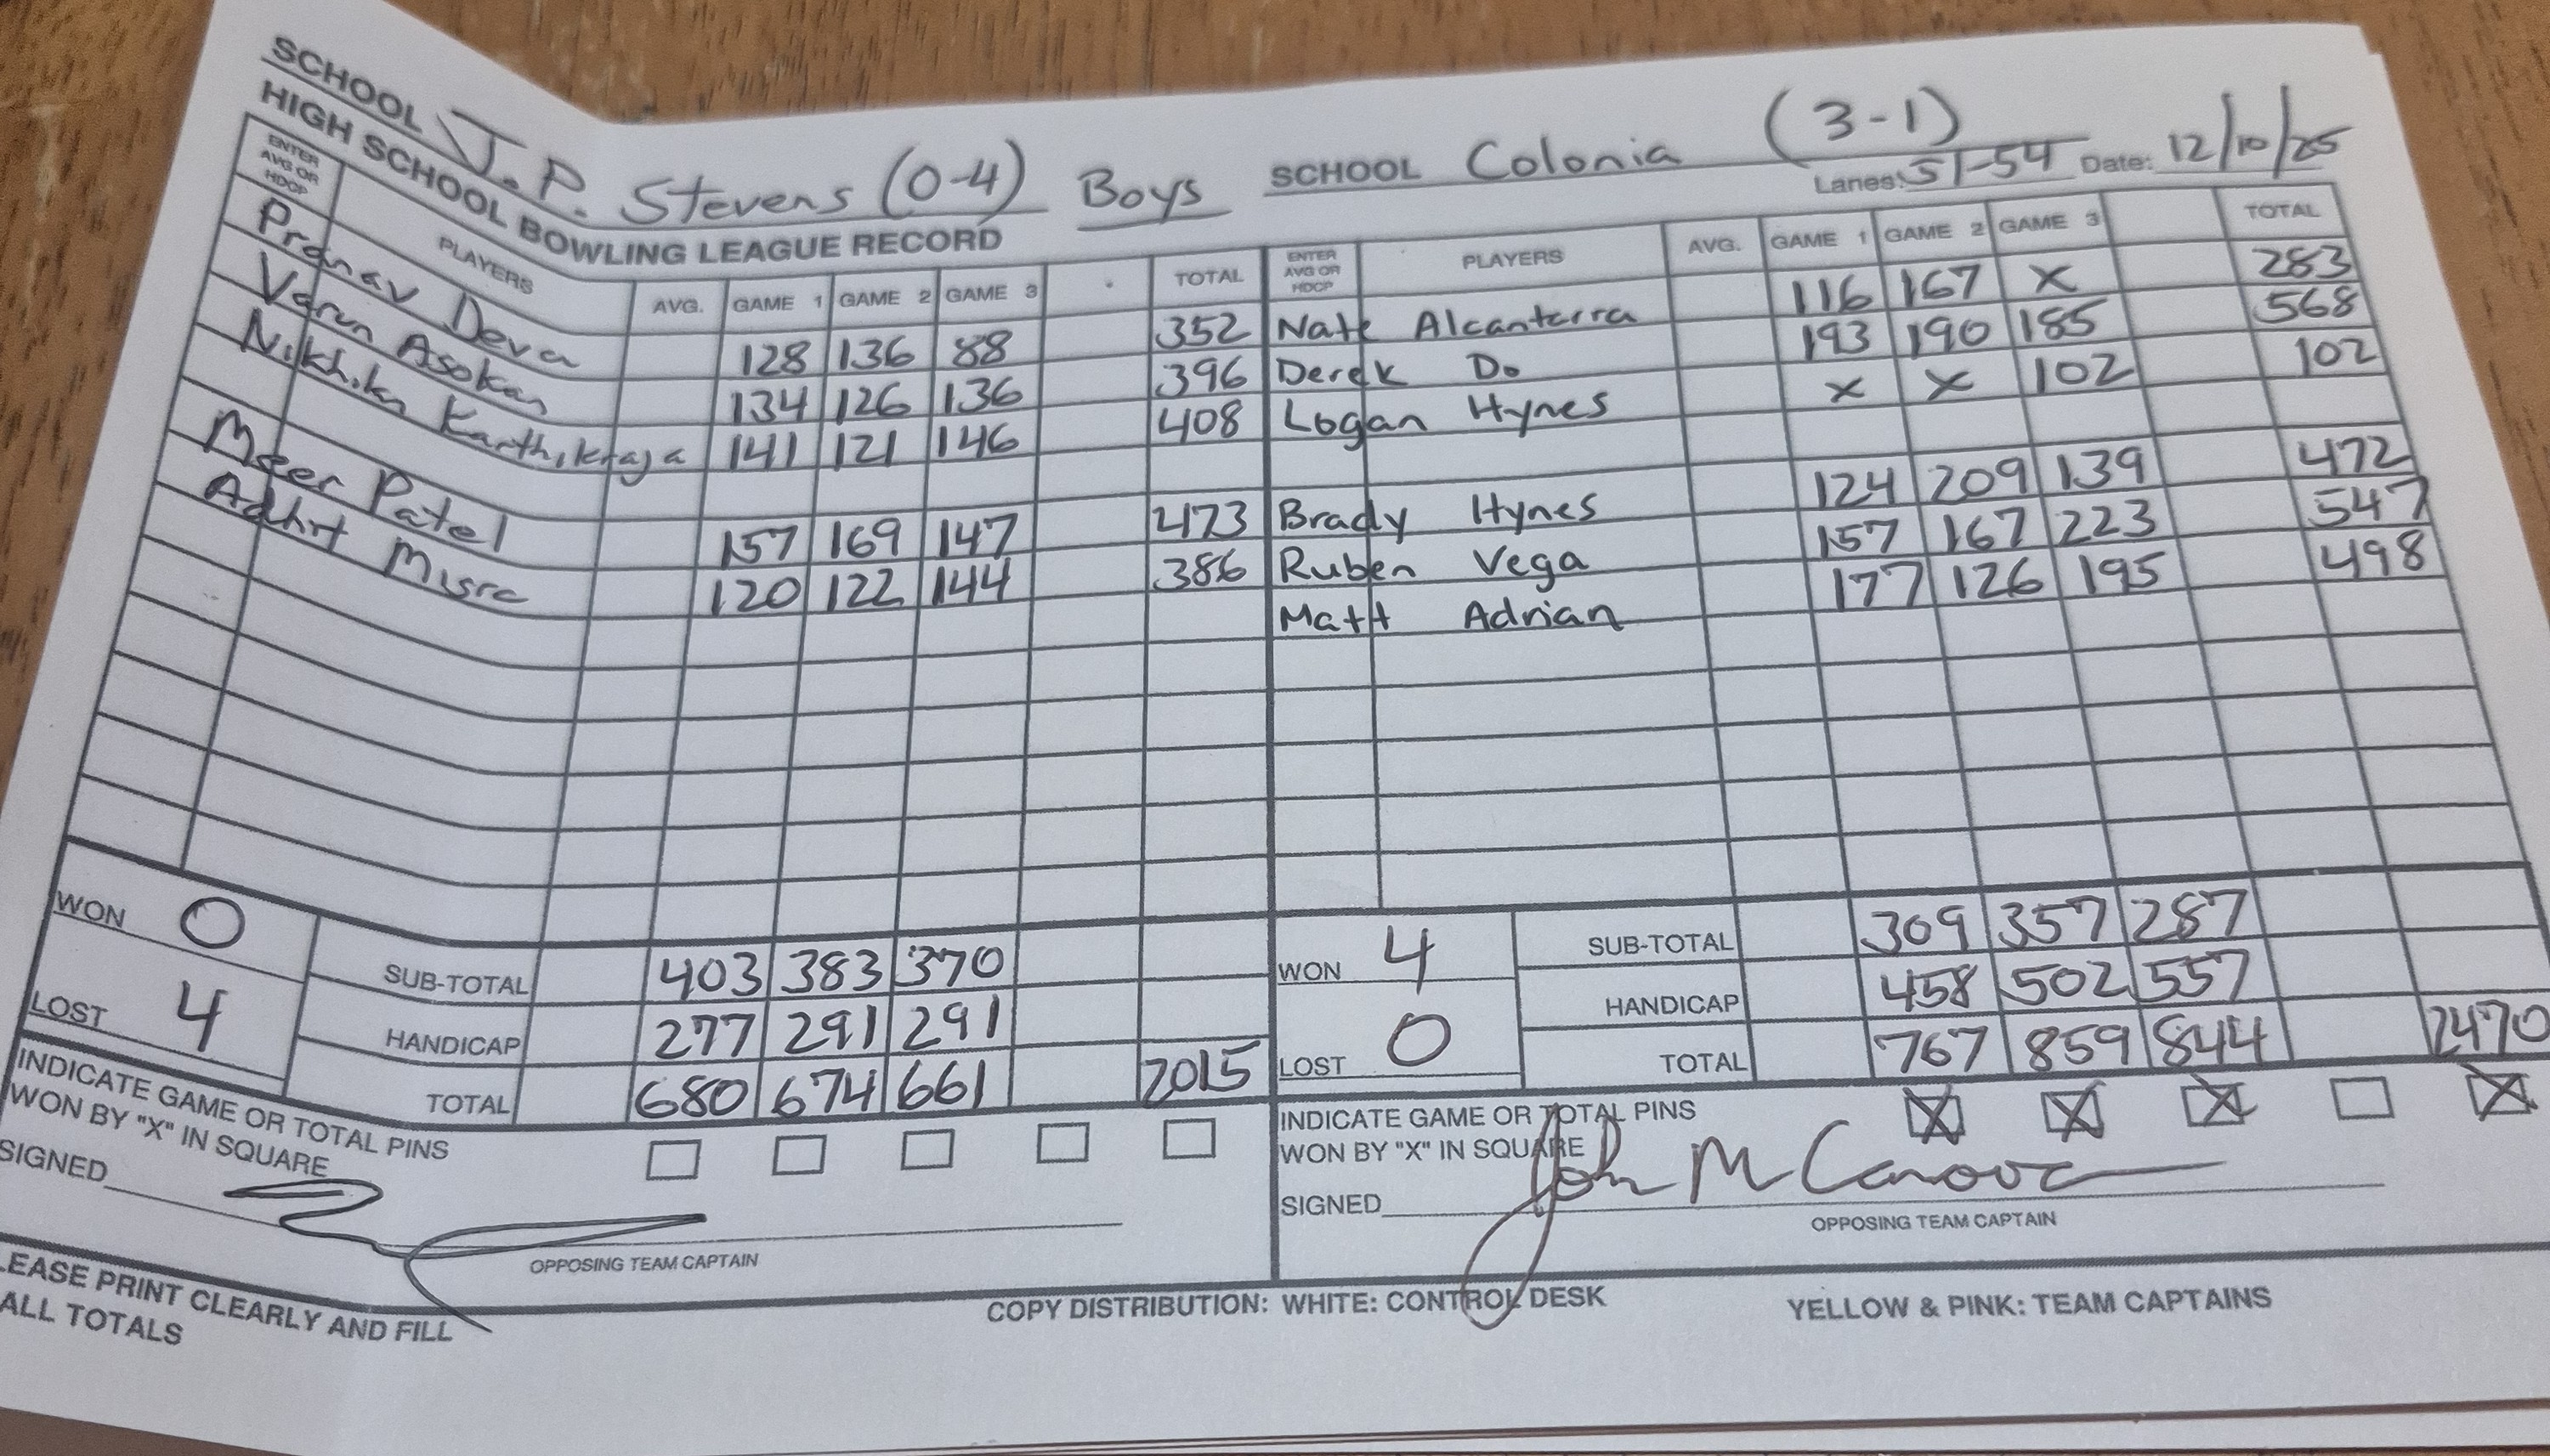 SCHOOL J.P. Stevens (0-4) Boys SCHOOL Colonia (3-1)
HIGH SCHOOL BOWLING LEAGUE RECORD Lanes: 51-54 Date: 12/10/25
ENTER AVG OR HDCP PLAYERS AVG. GAME 1 GAME 2 GAME 3 TOTAL ENTER AVG OR HDCP PLAYERS AVG. GAME 1 GAME 2 GAME 3 TOTAL
Pranav Deva 128 136 88 352 Nate Alcantarra 116 167 X 283
Varun Asokan 134 126 136 396 Derek Do 193 190 185 568
Nikhilan Karthikraja 141 121 146 408 Logan Hynes X X 102 102
Meer Patel 157 169 147 473 Brady Hynes 124 209 139 472
Adhrt Misra 120 122 144 386 Ruben Vega 157 167 223 547
Matt Adrian 177 126 195 498
WON 0 SUB-TOTAL 403 383 370 WON 4 SUB-TOTAL 309 357 287
HANDICAP 277 291 291 HANDICAP 458 502 557
LOST 4 TOTAL 680 674 661 2015 LOST 0 TOTAL 767 859 844 2470
INDICATE GAME OR TOTAL PINS INDICATE GAME OR TOTAL PINS X X X X
WON BY "X" IN SQUARE WON BY "X" IN SQUARE
SIGNED SIGNED John M Canova
OPPOSING TEAM CAPTAIN OPPOSING TEAM CAPTAIN
LEASE PRINT CLEARLY AND FILL COPY DISTRIBUTION: WHITE: CONTROL DESK YELLOW & PINK: TEAM CAPTAINS
ALL TOTALS